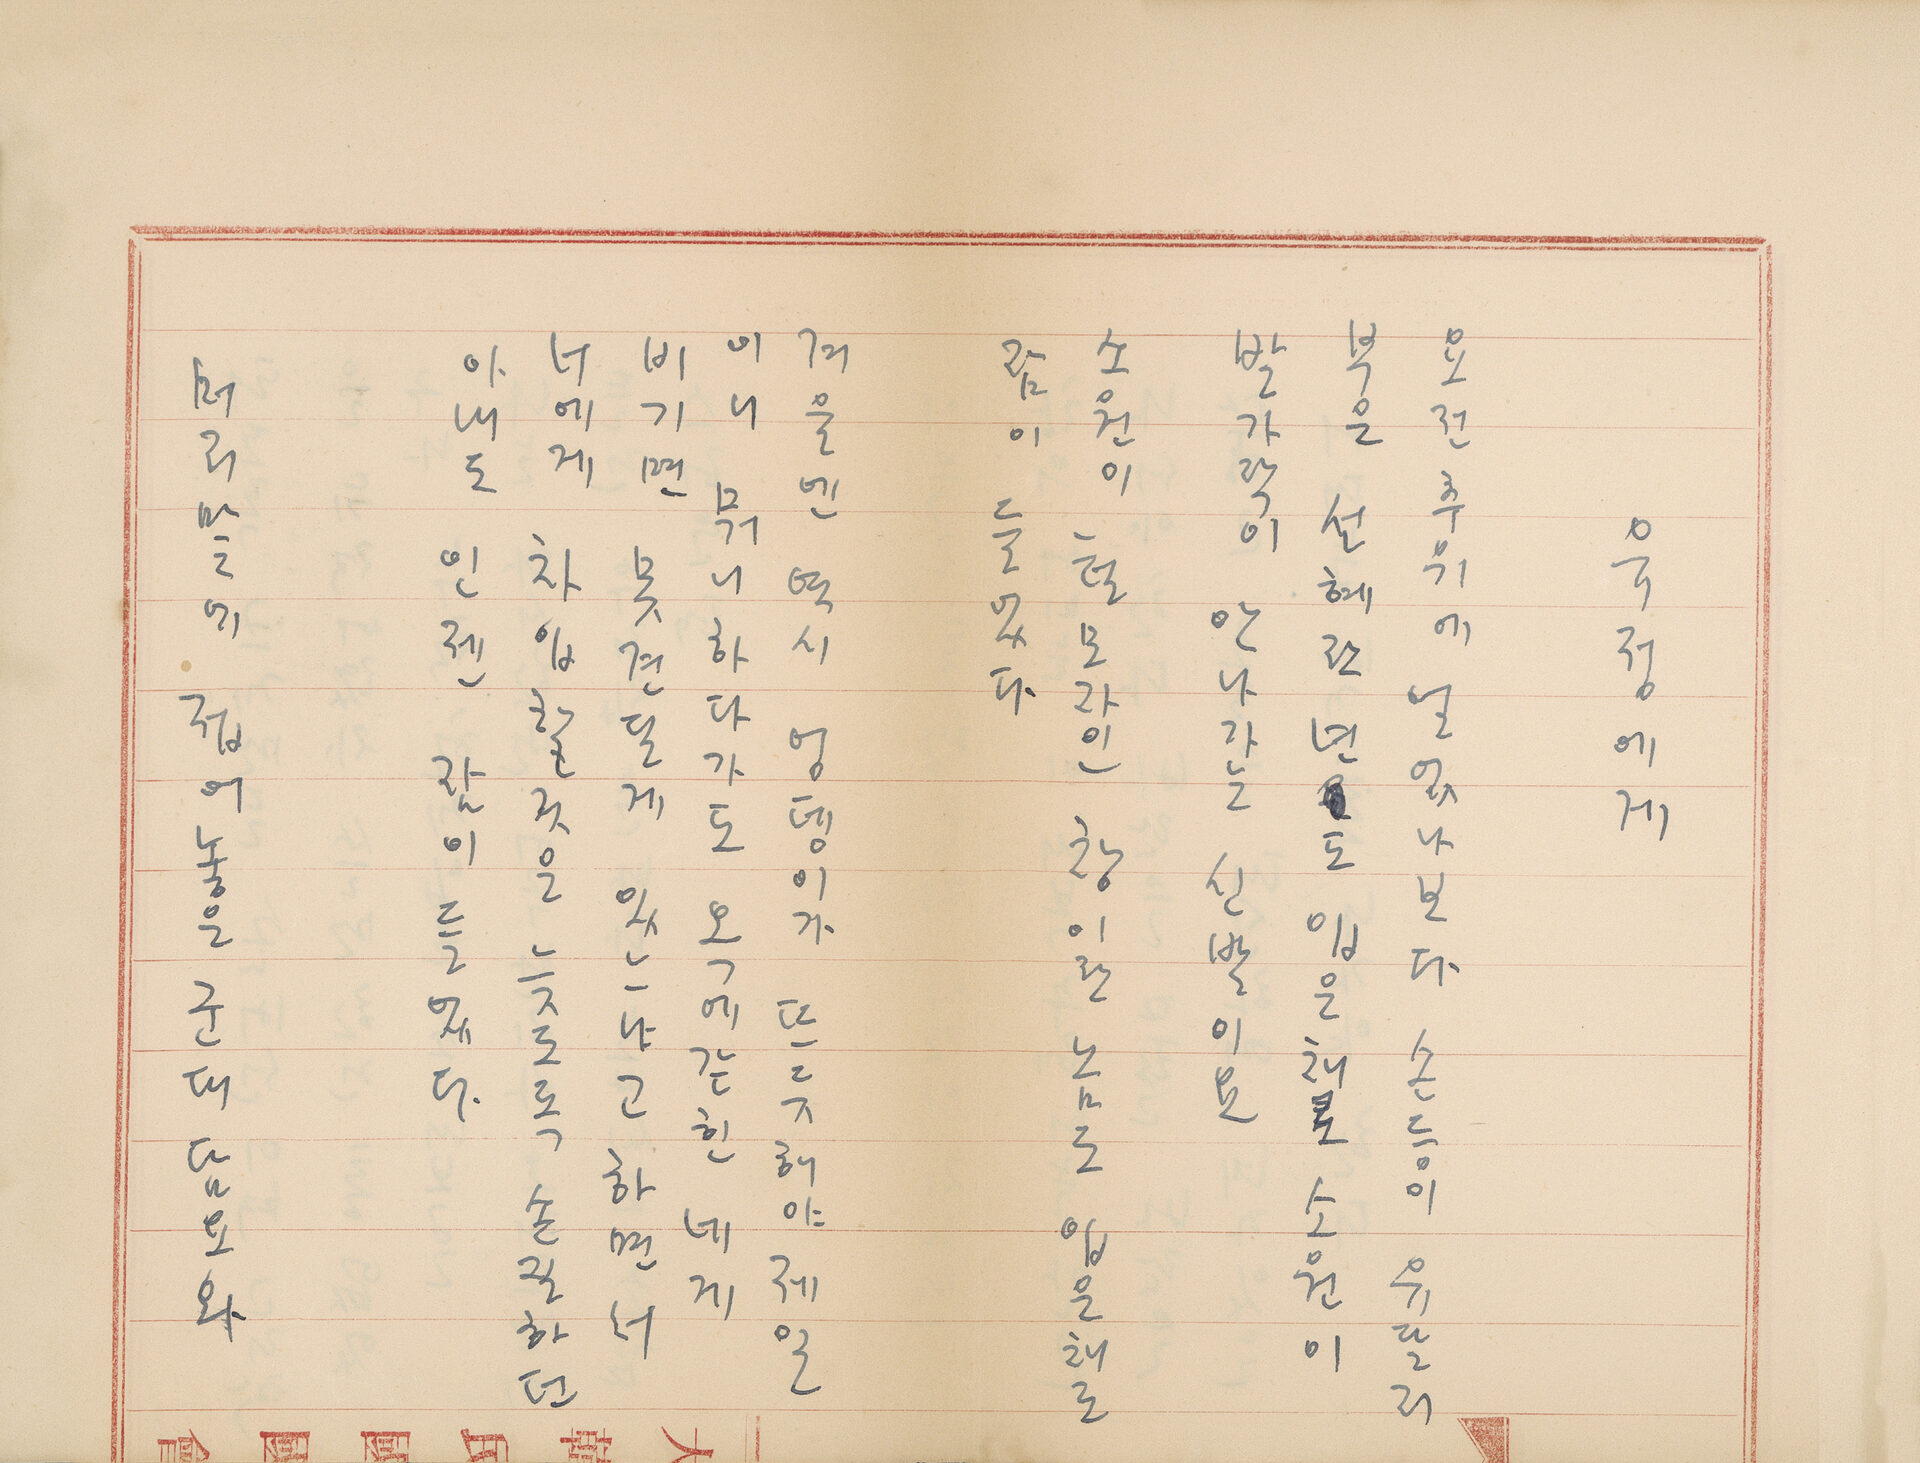 유정에게
요전추위에 얼었나보다 손등이 유달리
북은 선혜란 년도 입은채로 소원이
발가락이 안나가는 신발이요
소원이 털모자인 창이란 놈도 입은채로
잠이 들었다
겨울엔 역시 엉덩이가 뜨뜻해야 제일
이니 뭐니하다가도 옥에갇힌 네게
비기면 못견딜게 있느냐고 하면서
너에게 차입할것을 늦도록 손질하던
아내도 인젠 잠이 들었다
머리맡에 접어놓은 군대 담요와
大韓民國國會